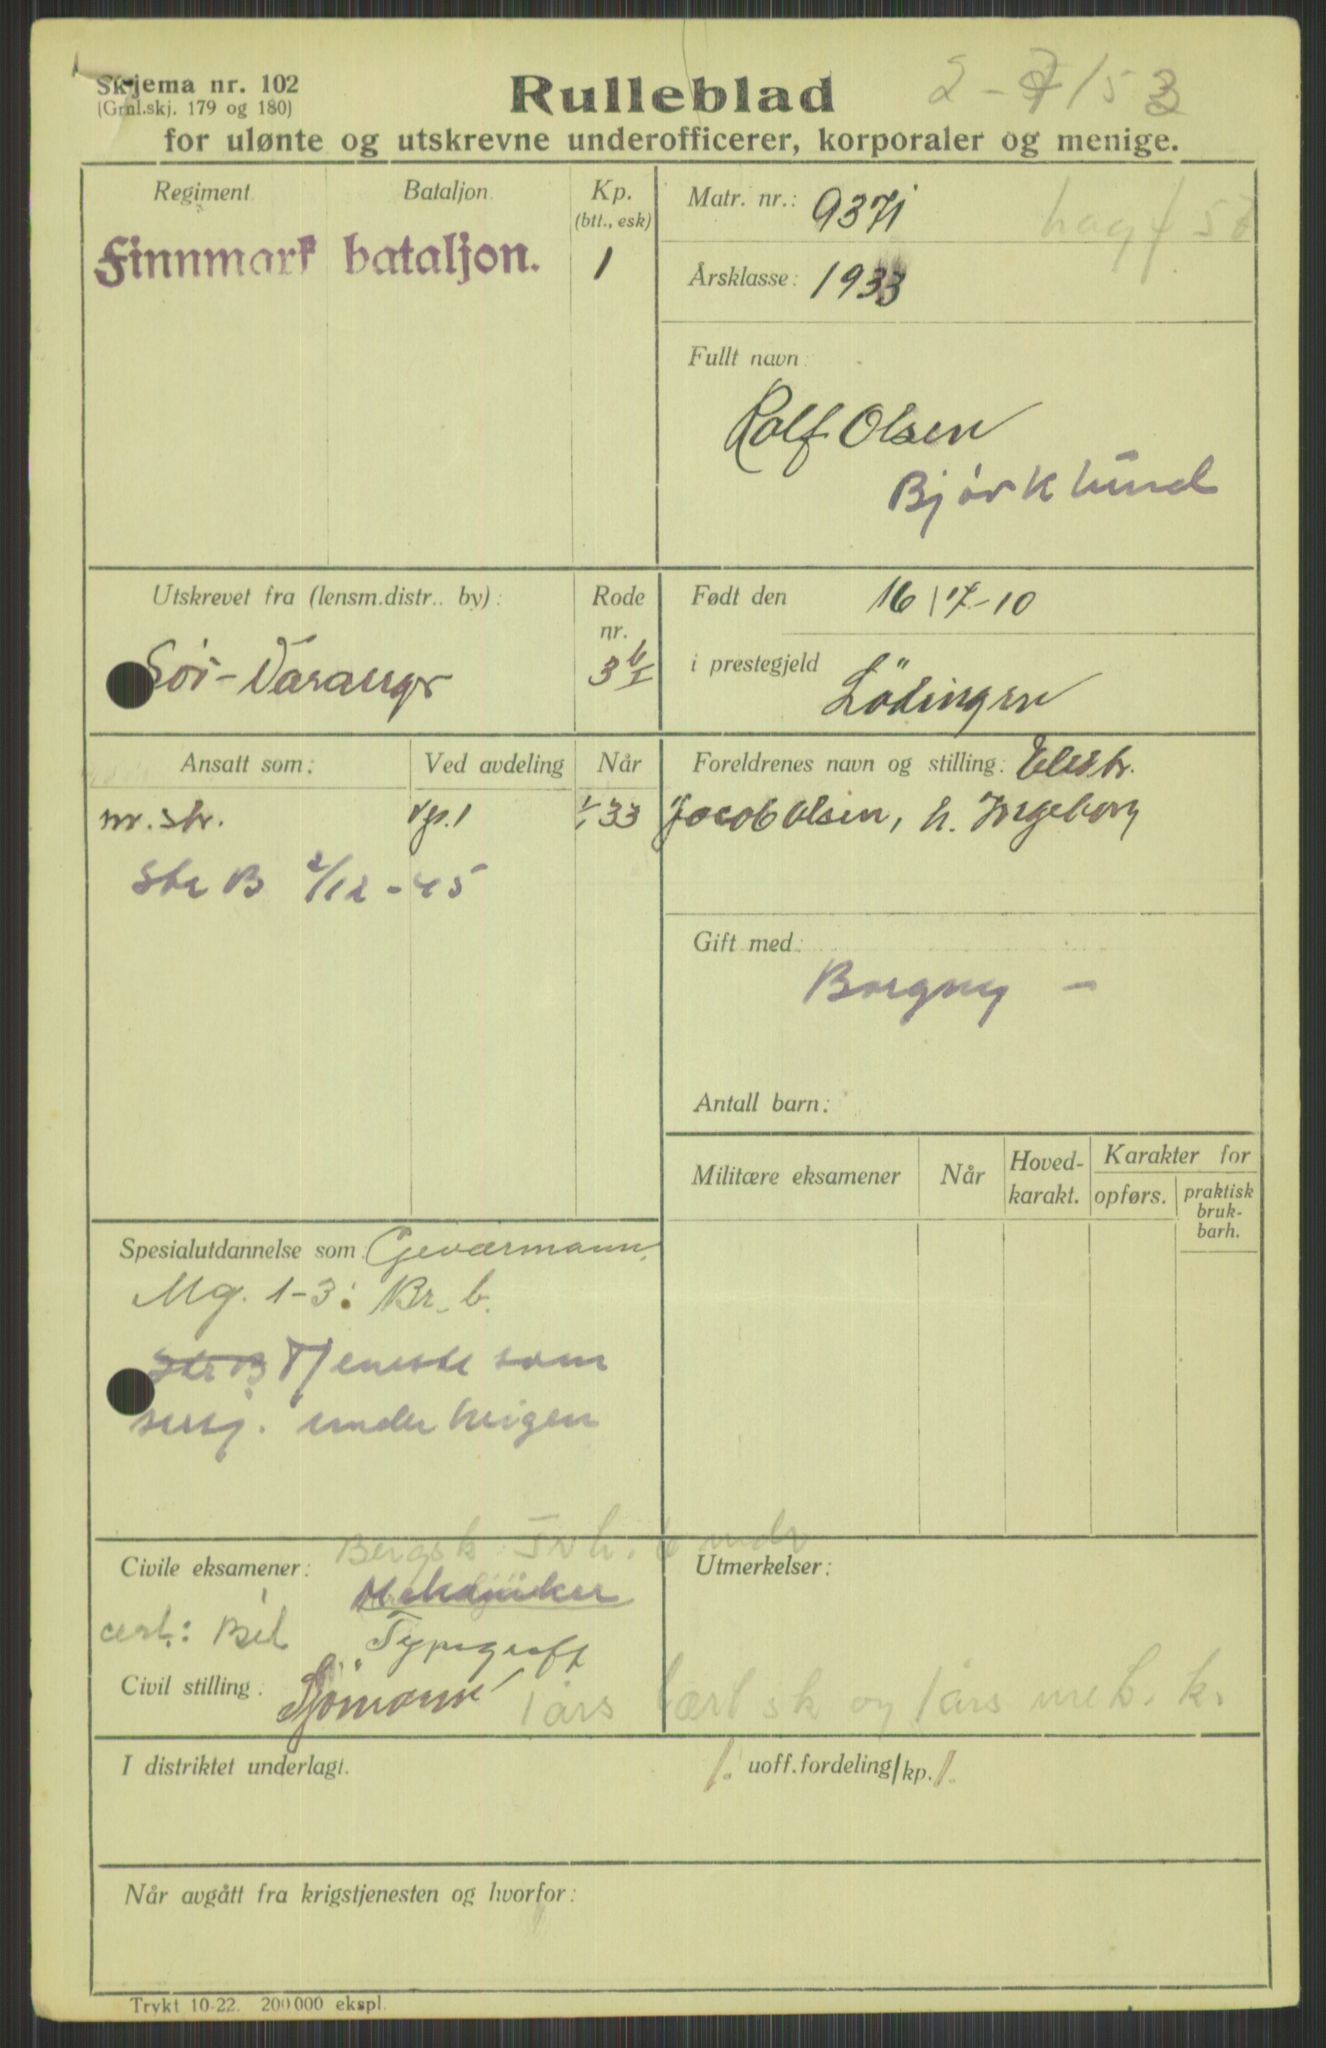 Skjema nr. 102
(Grnl.skj. 179 og 180)
Rulleblad
for ulønte og utskrevne underofficerer, korporaler og menige.
Regiment
Bataljon
Kp.
(btt., esk)
Finnmark bataljon.
1
Matr. nr.:
9371
Årsklasse:
1933
Fullt navn:
Rolf Olsen
Bjørklund
Utskrevet fra (lensm.distr.. by):
Sör-Varanger
Rode
nr.
3 b/I
Født den
16/7-10
i prestegjeld
Lödingen
Ansatt som:
Ved avdeling
Når
nr. str.
kp. 1
33
Str B 2/12-45
Foreldrenes navn og stilling:
Jacob Olsen, h. Ingeborg
Gift med:
Borgny -
Antall barn:
Militære eksamener
Når
Hoved-
karakt.
Karakter for
opførs.
praktisk
bruk-
barh.
Spesialutdannelse som
Geværmann.
Mg. 1-3: Br. b.
Str B Tjeneste som
serg. under krigen
Civile eksamener:
Mekaniker
cert.: Bil
Typograf
Civil stilling:
Sjömann
1 års sk og 1 års
Utmerkelser:
I distriktet underlagt.
1. uoff.fordeling/kp. 1.
Når avgått fra krigstjenesten og hvorfor:
Trykt 10-22. 200 000 ekspl.